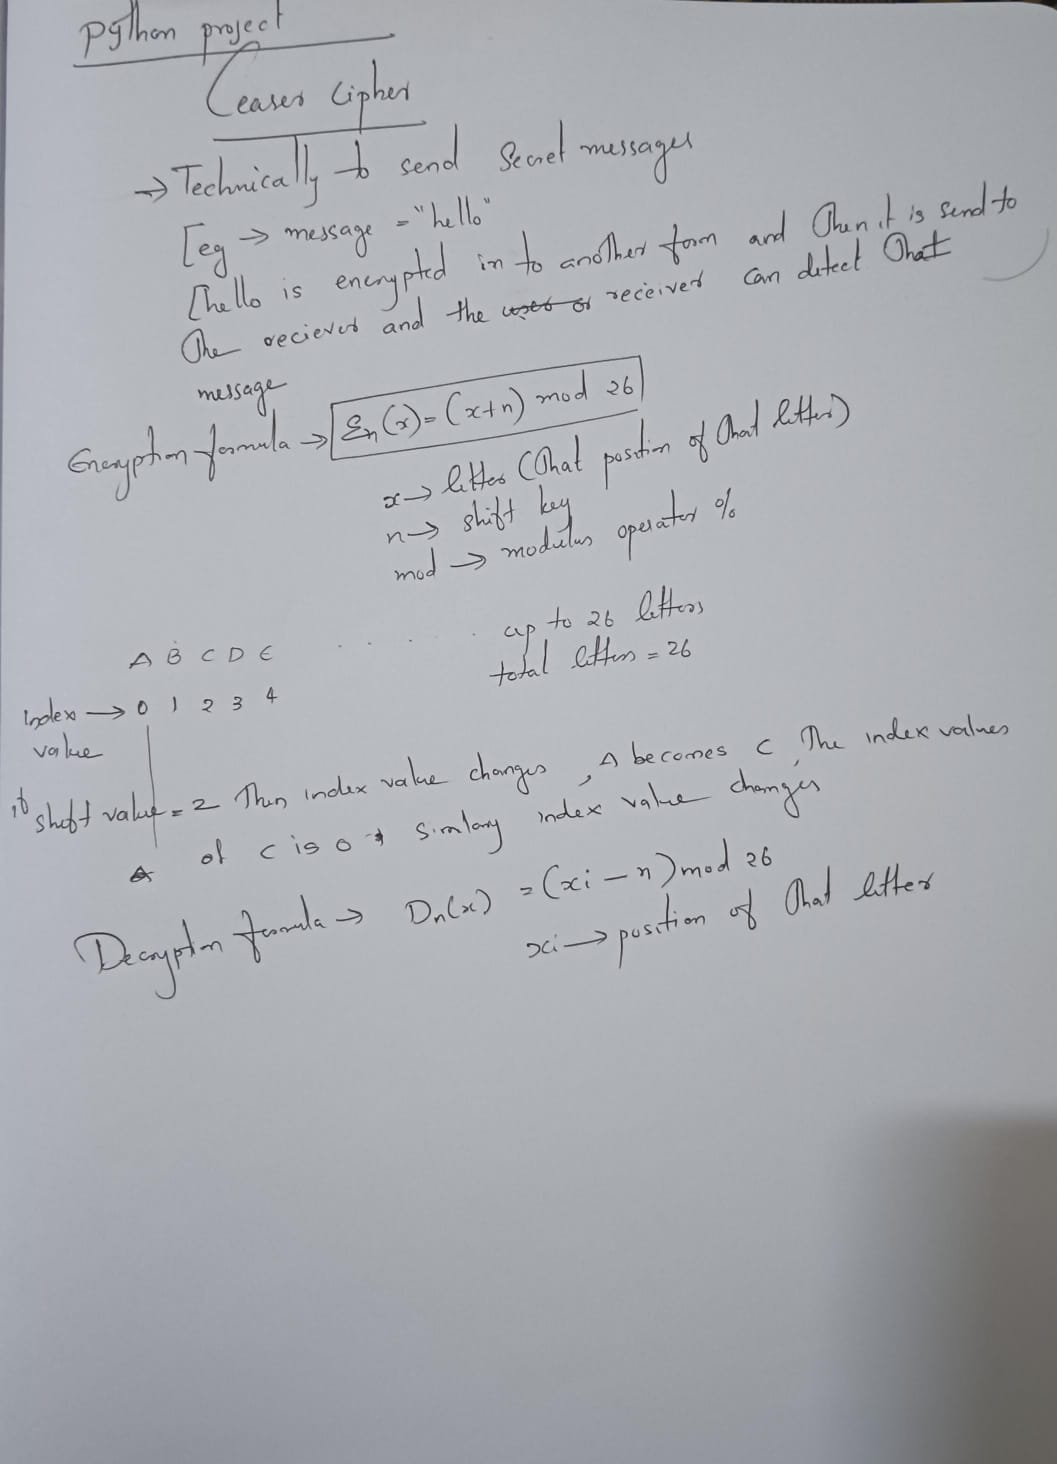 Python project
Ceaser Cipher
→ Technically to send Secret messages
[eg → message = "hello"
[hello is encrypted in to another form and then it is send to
the reciever and the user or receiver can detect that
message
Encryption formula → En(x) = (x+n) mod 26
x → letter (that position of that letter)
n → shift key
mod → modulus operator %
A B C D E . . . . . up to 26 letters
total letters = 26
Index → 0 1 2 3 4
value
if shift value = 2 Then index value changes, A becomes C, The index values
of C is 0 similary index value changes
Decryption formula → Dn(x) = (xi − n) mod 26
xi → position of that letter